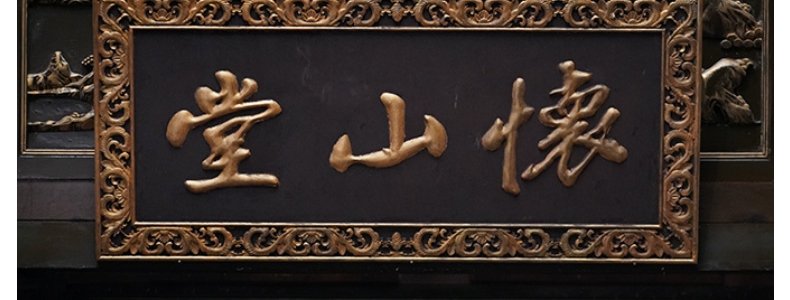 懷山堂